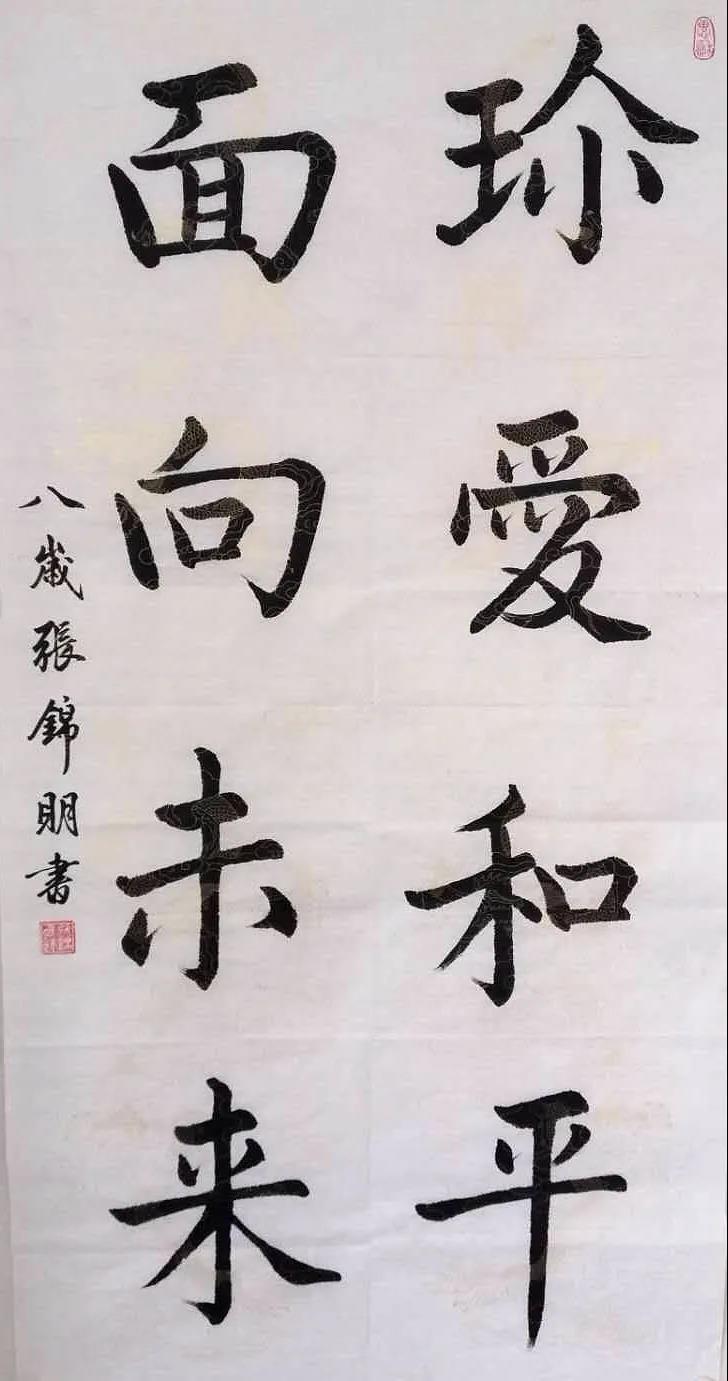 珎愛和平
面向未来
八歲張錦明書